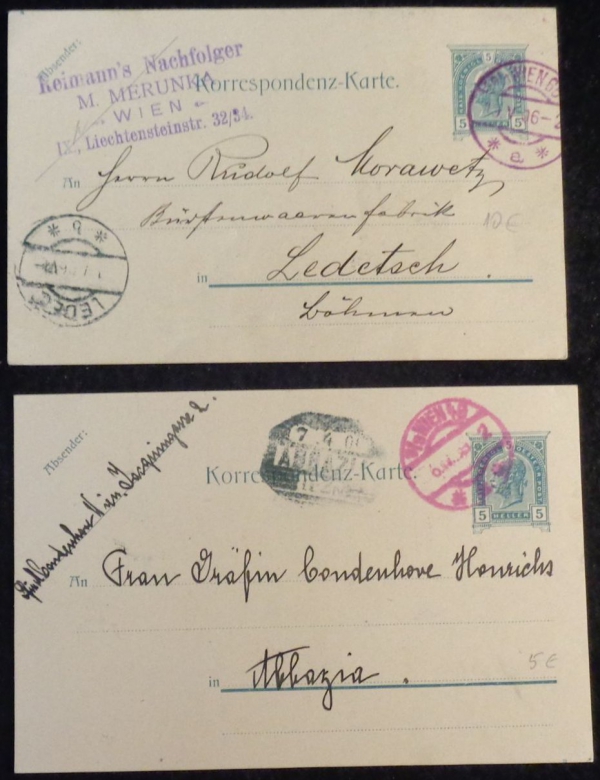 Absender:
Reimann's Nachfolger
M. MERUNKA
WIEN
IX., Liechtensteinstr. 32/34.
Korrespondenz-Karte.
5
5 5
WIEN
* a *
An Herrn Rudolf Morawetz
Bürstenwaarenfabrik
10 €
in Ledetsch.
Böhmen
* b *
LEDEČ
Absender:
7 4
ABBAZIA
Korrespondenz-Karte.
WIEN
5 HELLER 5
An Frau Gräfin Coudenhove Honrichs
5 €
in Abbazia.